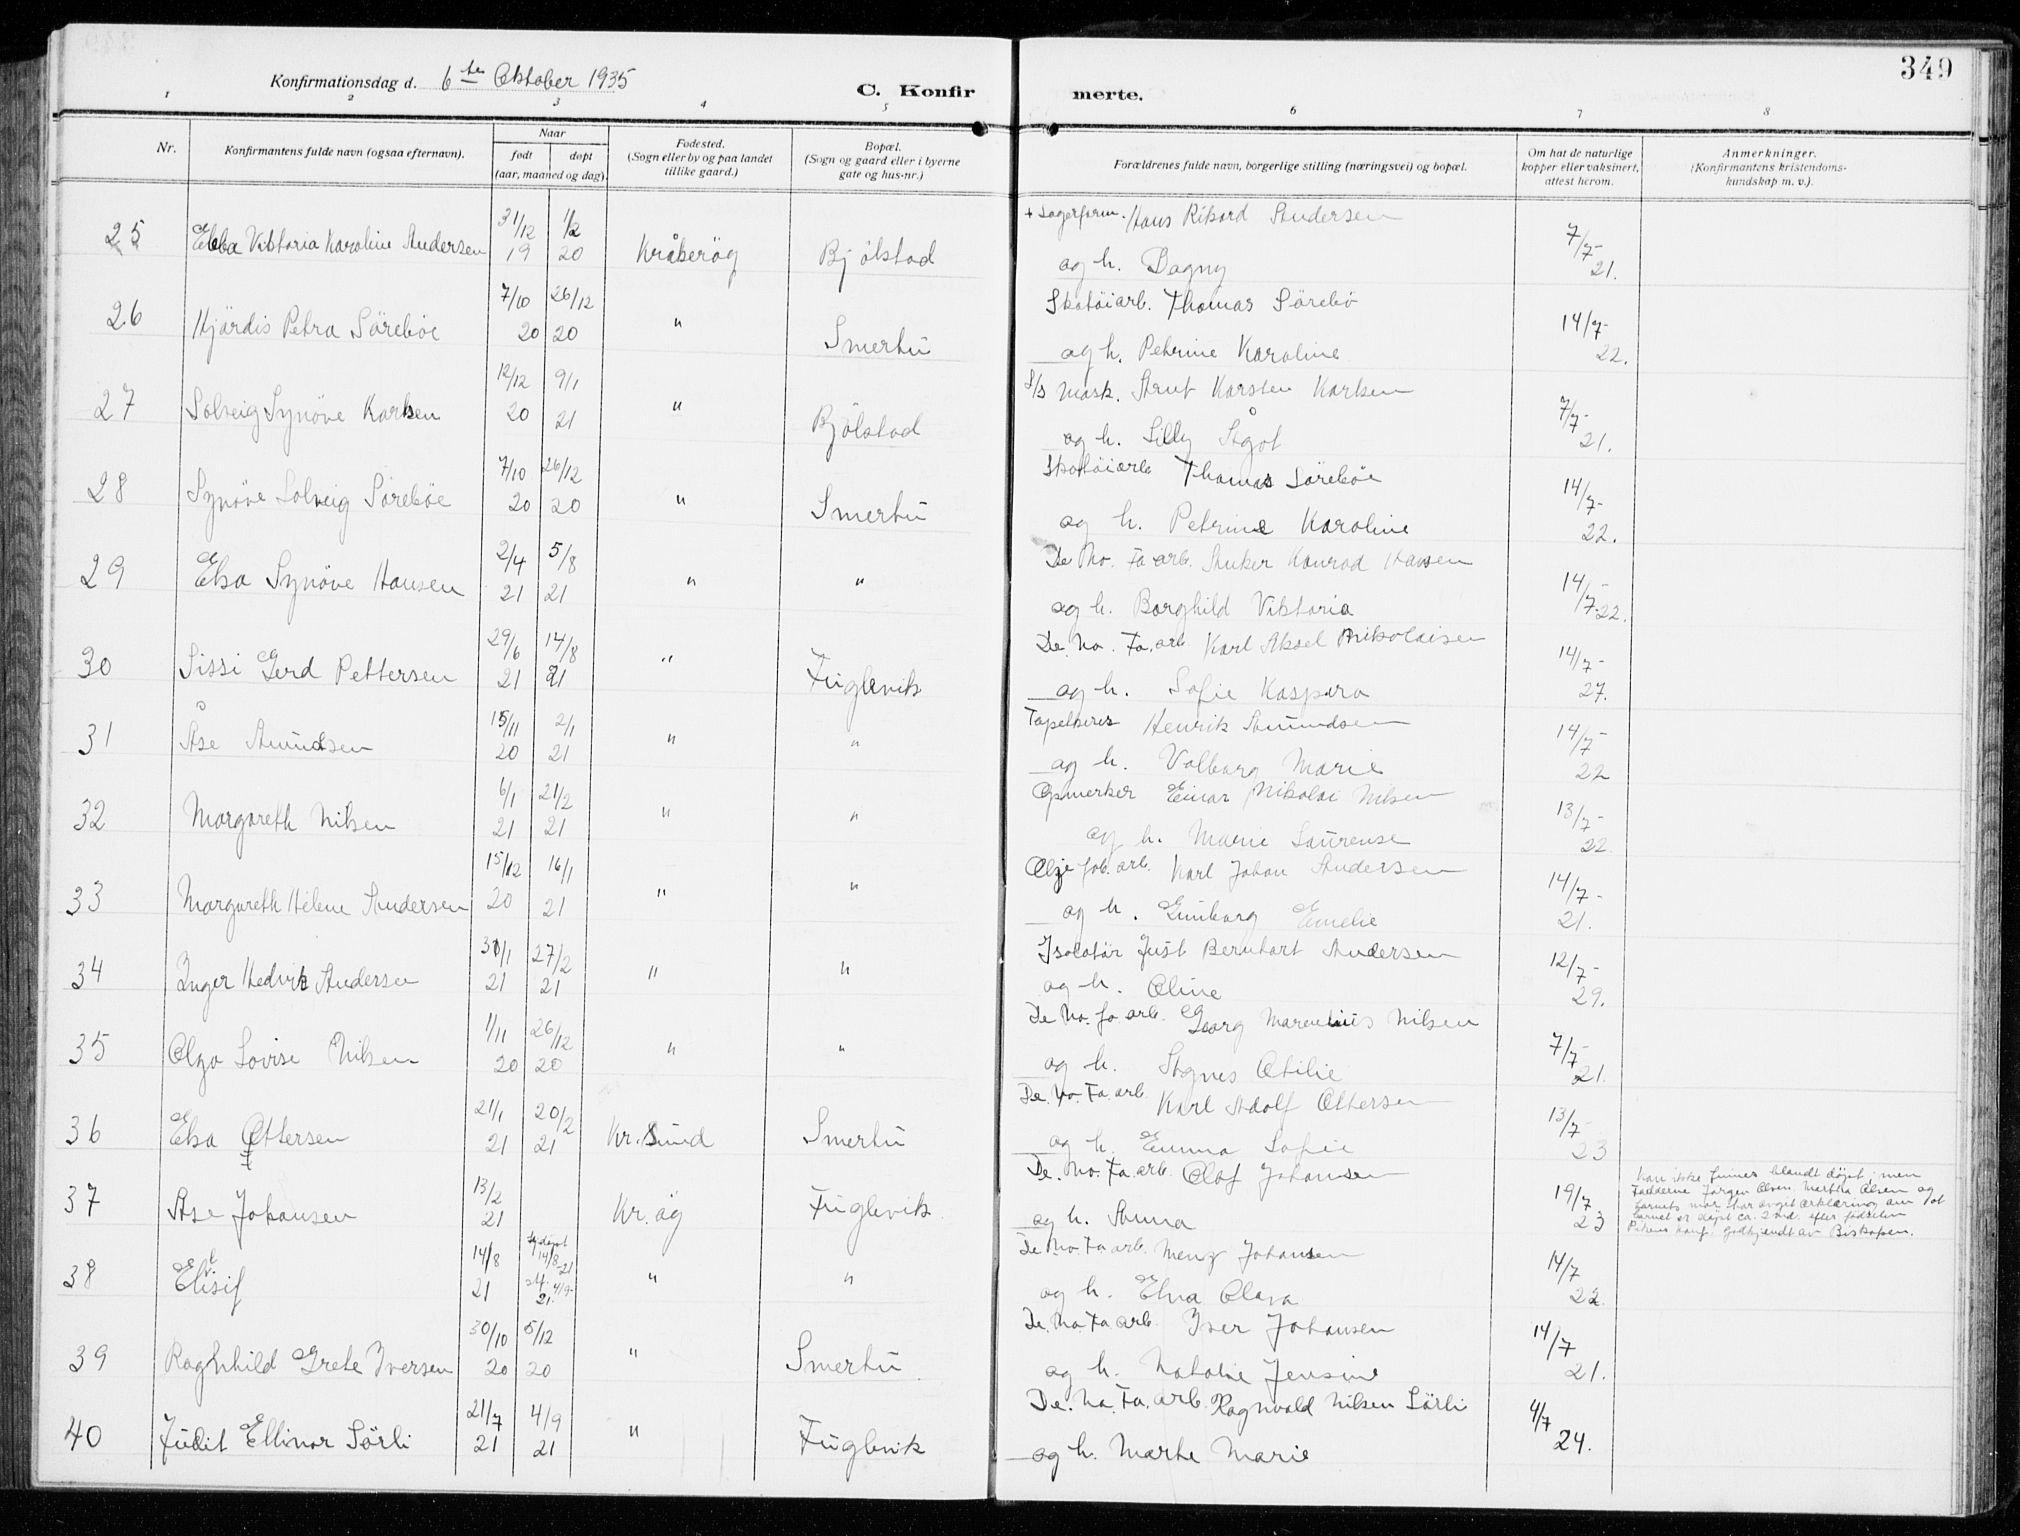 349
Konfirmationsdag d. 6te Oktober 1935
C. Konfirmerte.
1 2 3 4 5 6 7 8
Nr.
Konfirmantens fulde navn (ogsaa efternavn).
Naar
født døpt
(aar, maaned og dag).
Fødested.
(Sogn eller by og paa landet
tillike gaard.)
Bopæl.
(Sogn og gaard eller i byerne
gate og hus-nr.)
Forældrenes fulde navn, borgerlige stilling (næringsvei) og bopæl.
Om hat de naturlige
kopper eller vaksinert,
attest herom.
Anmerkninger.
(Konfirmantens kristendoms-
kundskap m. v.).
25 Ebba Viktoria Karoline Andersen 31/12 19 1/2 20 Kråkerøy Bjølstad + Lagerform. Hans Rikard Andersen
og h. Dagny 7/7- 21.
26 Hjørdis Petra Sørebøe 7/10 20 26/12 20 " Smertu Skotøiarb. Thomas Sørebø
og h. Petrine Karoline 14/7- 22.
27 Solveig Synøve Karlsen 12/12 20 9/1 21 " Bjølstad S/S Mask. Arnt Karsten Karlsen
og h. Silly Ågot 7/7- 21.
28 Synøve Solveig Sørebøe 7/10 20 26/12 20 " Smertu Skotøiarb Thomas Sørebøe
og h. Petrine Karoline 14/7- 22.
29 Elsa Synøve Hansen 2/4 21 5/8 21 " " De No. Fa arb. Anker Konrad Hansen
og h. Borghild Viktoria 14/7- 22.
30 Sissi Gerd Pettersen 29/6 21 14/8 21 " Fuglevik De. No. Fa. arb. Karl Aksel Nikolaisen
og h. Sofie Kaspara 14/7- 27.
31 Åse Amundsen 15/11 20 2/1 21 " " Tapetserer Henrik Amundsen
og h. Valborg Marie 14/7- 22
32 Margareth Nilsen 6/1 21 21/2 21 " " Opmerker Einar Nikolai Nilsen
og h. Marie Laurense 13/7- 22.
33 Margareth Helene Andersen 15/12 20 16/1 21 " " Olje fab. arb. Karl Johan Andersen
og h. Gunborg Emelie 14/7- 21.
34 Inger Hedvik Andersen 30/1 21 27/2 21 " " Isolatør Just Bernhart Andersen
og h. Oline 12/7- 29.
35 Olga Lovise Nilsen 1/11 20 26/12 20 " " De No. fa arb. Georg Marenius Nilsen
og h. Agnes Otilie 7/7- 21.
36 Elsa Ottersen 21/1 21 20/2 21 Kr. Sund Smertu De. No. Fa. arb. Karl Adolf Ottersen
og h. Emma Sofie 13/7- 23
37 Åse Johansen 13/2 21 Kr.øy Fuglevik De. No. Fa arb. Olaf Johansen
og h. Anna 19/7 23
kan ikke finnes blandt døpt, men
Fadderne Jørgen Olsen, Martha Olsen og
barnets mor har avgit erklæring om at
barnet er døpt ca. 2 md. efter fødselen
Pikens konf. godkjendt av Biskopen.
38 Elisif 14/8 21 hj.døpt 14/8-21 st. 4/9- 21. " " De No. Fa arb. Menz Johansen
og h. Elna Clara 14/7 22.
39 Raghnhild Grete Iversen 30/10 20 5/12 20 " Smertu De. No. Fa arb. Iver Johansen
og h. Natalie Jensine 14/7 21.
40 Judit Ellinor Sørli 21/7 21 4/9 21 " Fuglevik De. No. Fa. arb. Ragnvald Nilsen Sørli
og h. Marte Marie 4/7 24.